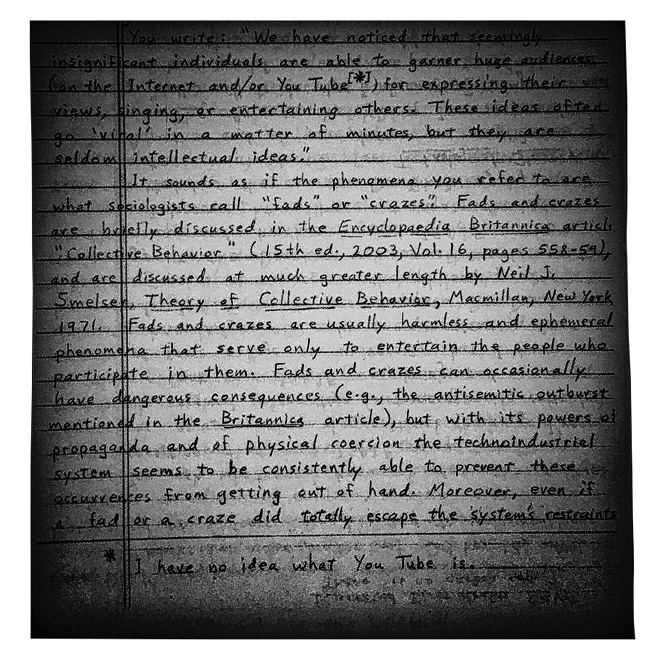 You write: "We have noticed that seemingly
insignificant individuals are able to garner huge audiences
(on the Internet and/or You Tube[*]) for expressing their
views, singing, or entertaining others. These ideas often
go 'viral' in a matter of minutes, but they are
seldom intellectual ideas."
It sounds as if the phenomena you refer to are
what sociologists call "fads" or "crazes". Fads and crazes
are briefly discussed in the Encyclopaedia Britannica article
"Collective Behavior" (15th ed., 2003, Vol. 16, pages 558-59),
and are discussed at much greater length by Neil J.
Smelser, Theory of Collective Behavior, Macmillan, New York
1971. Fads and crazes are usually harmless and ephemeral
phenomena that serve only to entertain the people who
participate in them. Fads and crazes can occasionally
have dangerous consequences (e.g., the antisemitic outburst
mentioned in the Britannica article), but with its powers of
propaganda and of physical coercion the technoindustrial
system seems to be consistently able to prevent these
occurrences from getting out of hand. Moreover, even if
a fad or a craze did totally escape the system's restraints
* I have no idea what You Tube is.